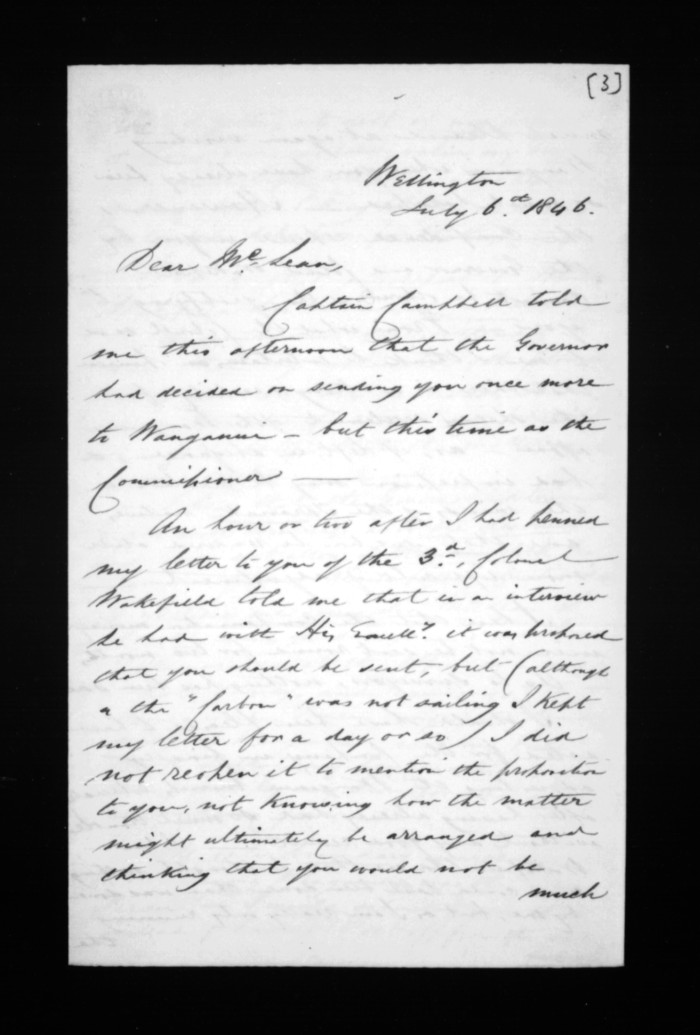 [3]
Wellington
July 6.th 1846.
Dear McLean,
Captain Campbell told
me this afternoon that the Governor
had decided on sending you once more
to Wanganui - but this time as the
Commissioner -
An hour or two after I had penned
my letter to you of the 3.d, Colonel
Wakefield told me that in an interview
he had with His Excell.y it was proposed
that you should be sent, but (although
a the "Carbon" was not sailing I kept
my letter for a day or so) I did
not reopen it to mention the proposition
to you, not knowing how the matter
might ultimately be arranged and
thinking that you would not be
much